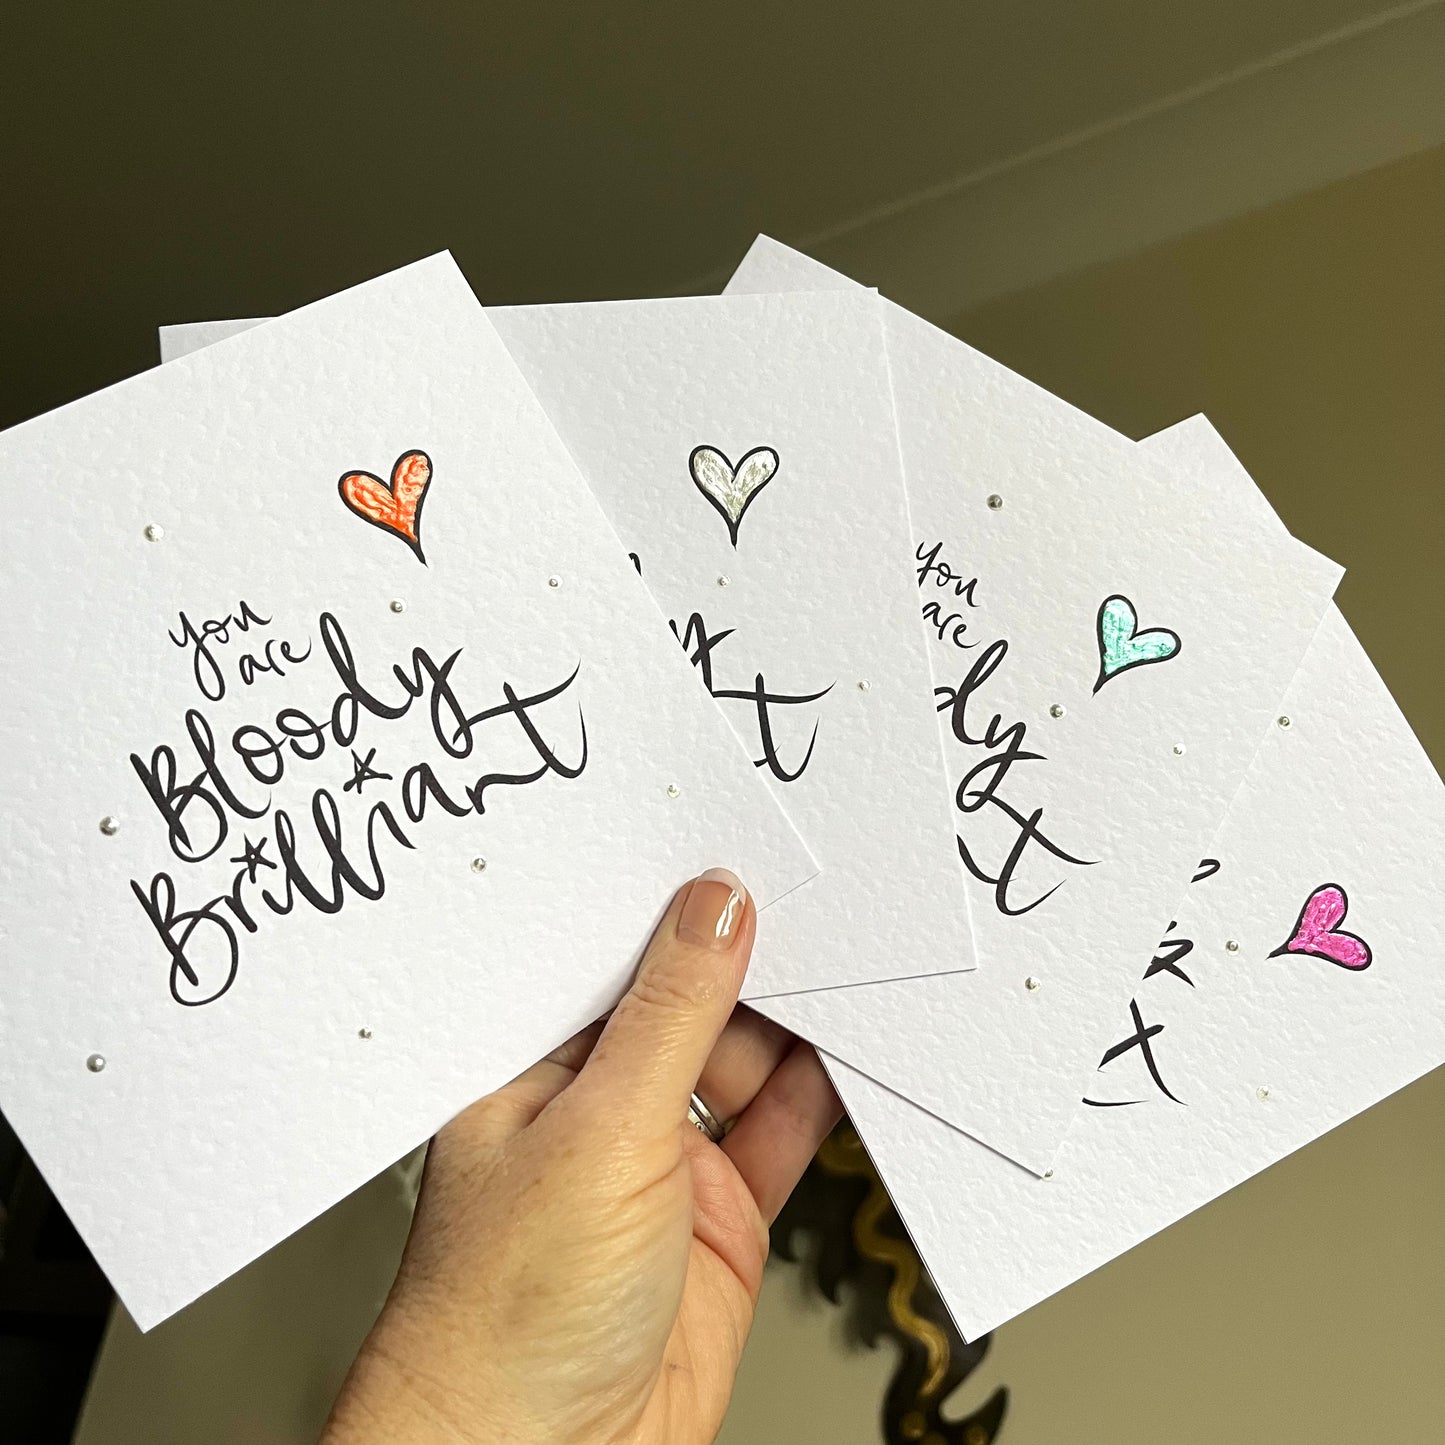 you
are
Bloody
Brilliant
you
are